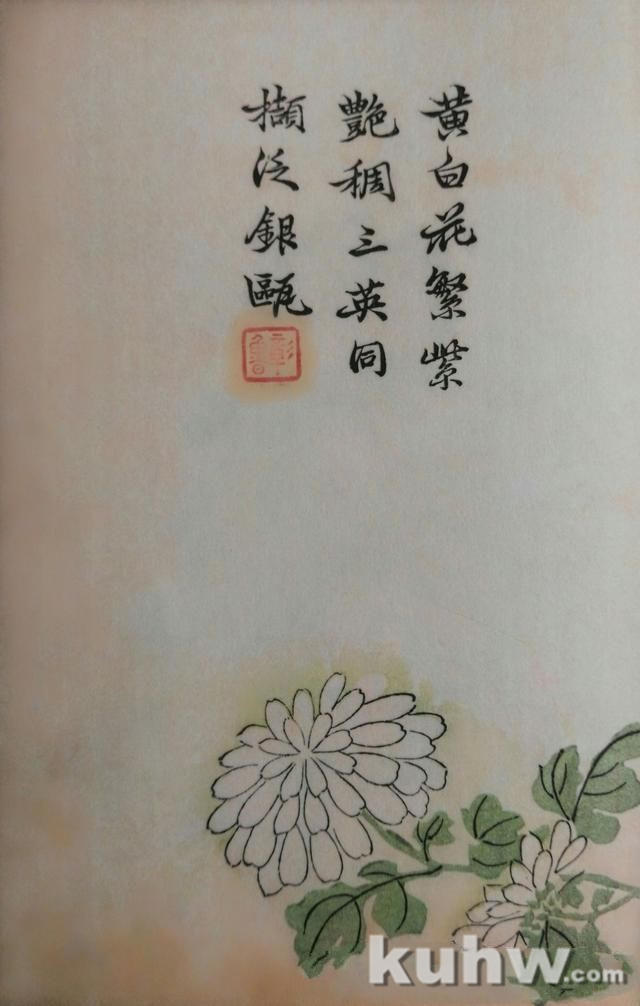 黄白花繁紫
艷稠三英同
擷泛銀甌
kuhw.com